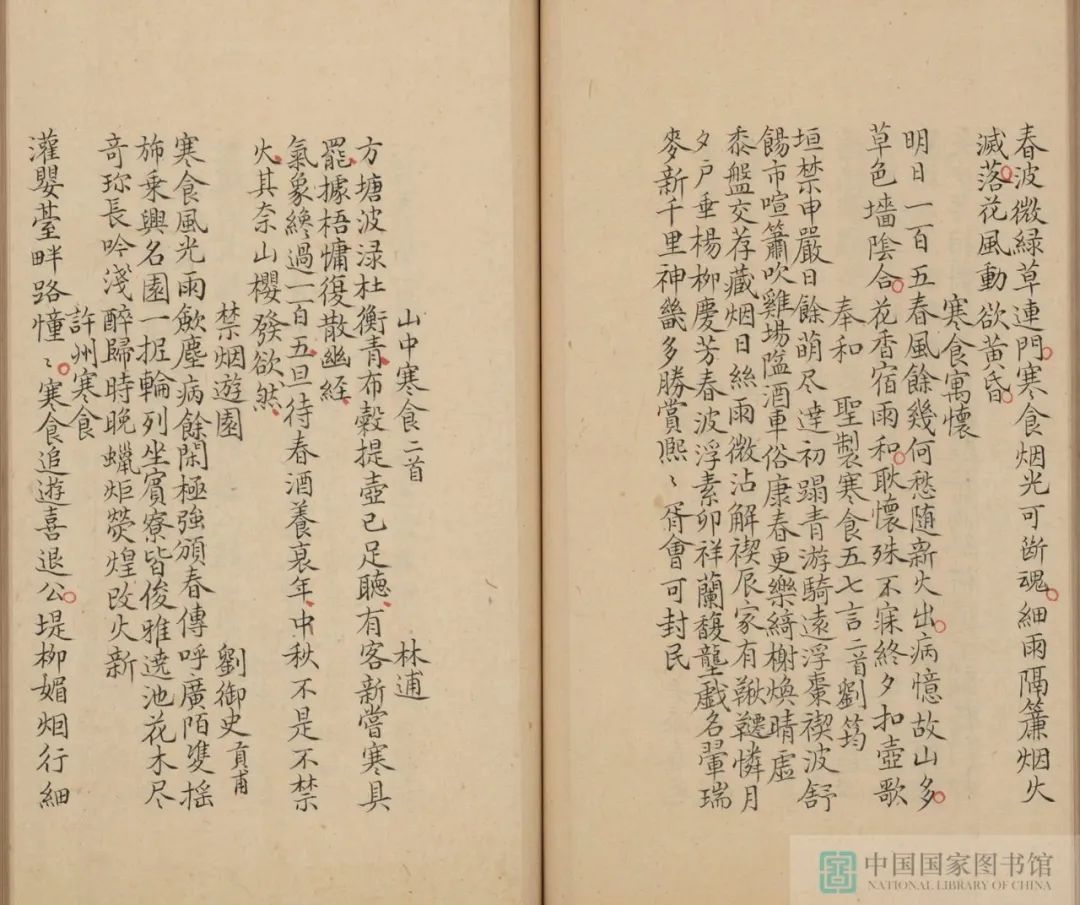 春波微緑草連門寒食烟光可断魂細雨隔簾烟火
滅落花風動欲黃昏
寒食寓懷
明日一百五春風餘幾何愁随新火出病憶故山多
草色墻隂合花香宿雨和耿懷殊不寐終夕扣壺歌
奉和 聖製寒食五七言二首劉筠
垣禁申嚴日餘萌尽達初蹋青游騎遠浮棗禊波舒
餳市喧簫吹雞場隘酒車俗康春更樂綺榭煥晴虚
黍盤交荐藏烟日絲雨微沾解禊辰家有鞦韆憐月
夕戶垂楊柳慶芳春波浮素卯祥蘭馥壟戲名翬瑞
麥新千里神畿多勝賞熈〻胥會可封民
山中寒食二首 林逋
方塘波渌杜衡青布穀提壺已足聽有客新嘗寒具
罷據梧慵復散幽經
氣象纔過一百五旦待春酒養衰年中秋不是不禁
火其奈山櫻發欲然
禁烟遊園 劉御史貢甫
寒食風光雨歛塵病餘閑極強頒春傳呼廣陌䨇揺
斾乗興名園一抳輪列坐賓寮皆俊雅遶池花木尽
竒珎長吟淺醉歸時晚蠟炬熒煌改火新
許州寒食
灌嬰䑓畔路憧〻寒食追遊喜退公堤柳媚烟行細
中国国家图书馆
NATIONAL LIBRARY OF CHINA